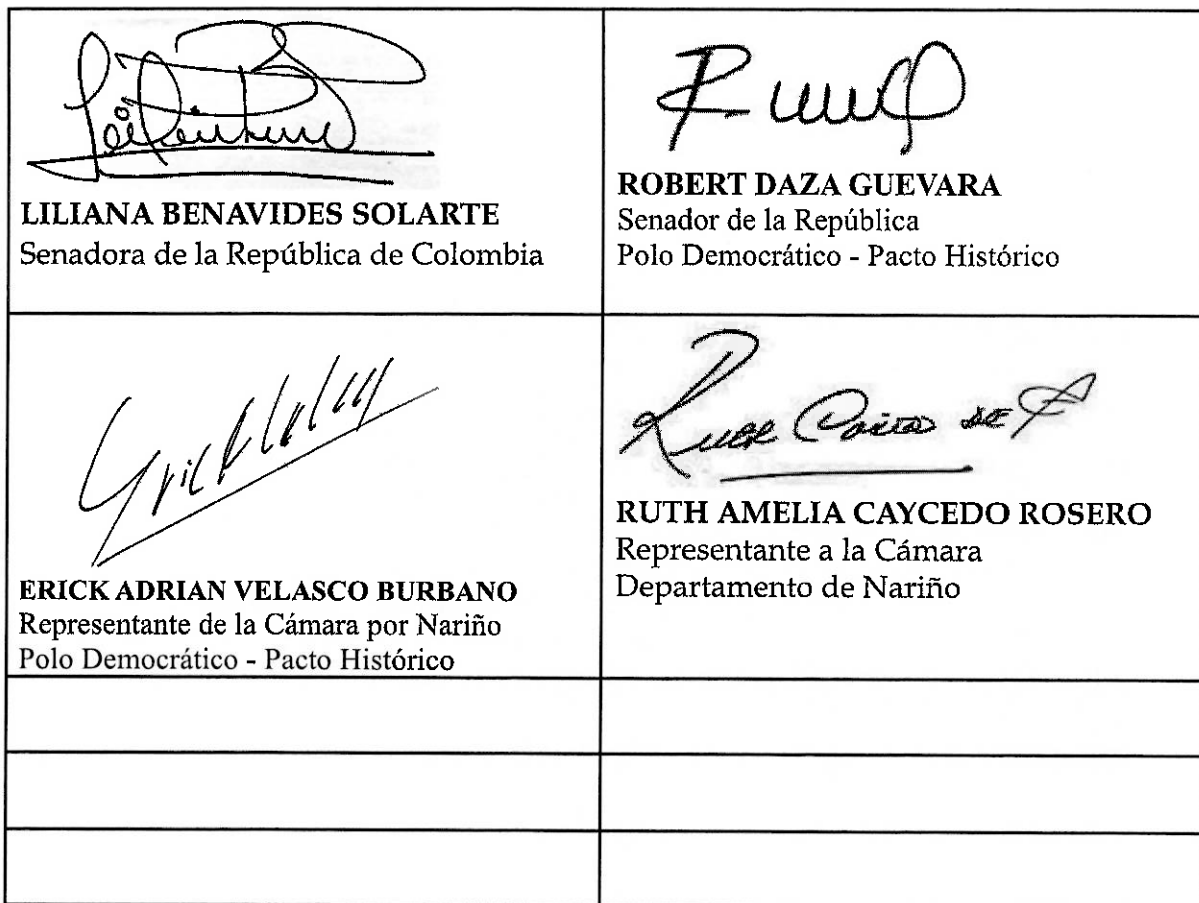 LILIANA BENAVIDES SOLARTE
Senadora de la República de Colombia
ROBERT DAZA GUEVARA
Senador de la República
Polo Democrático - Pacto Histórico
ERICK ADRIAN VELASCO BURBANO
Representante de la Cámara por Nariño
Polo Democrático - Pacto Histórico
RUTH AMELIA CAYCEDO ROSERO
Representante a la Cámara
Departamento de Nariño